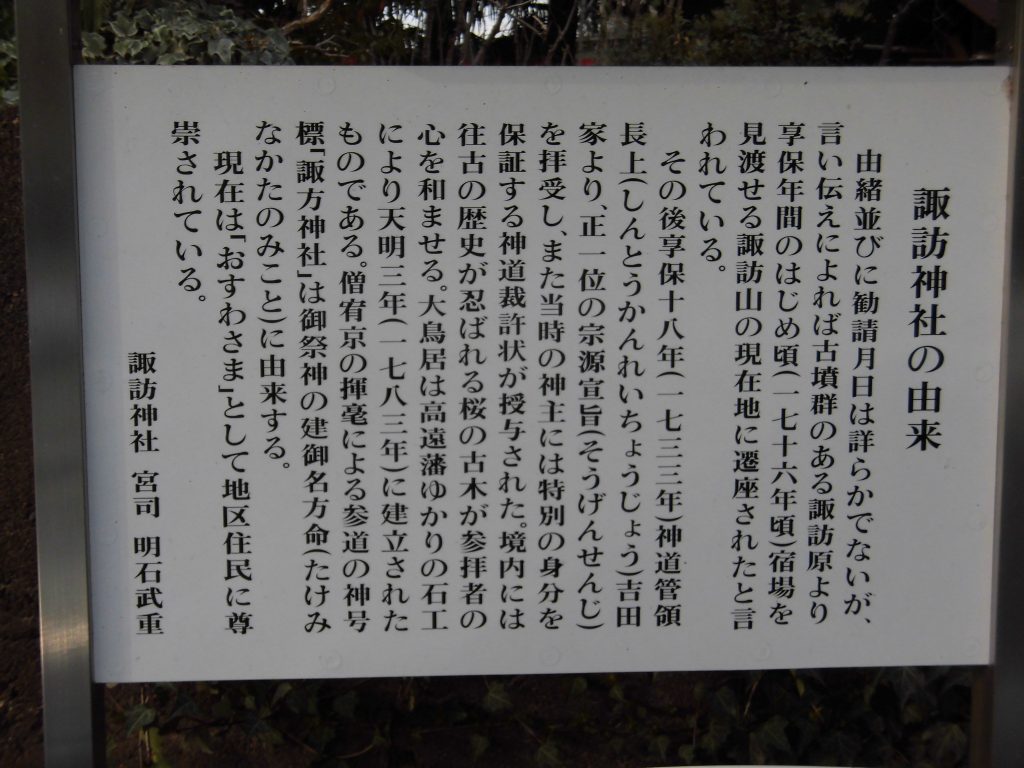 諏訪神社の由来
由緒並びに勧請月日は詳らかでないが、
言い伝えによれば古墳群のある諏訪原より
享保年間のはじめ頃(一七十六年頃)宿場を
見渡せる諏訪山の現在地に遷座されたと言
われている。
その後享保十八年(一七三三年)神道管領
長上(しんとうかんれいちょうじょう)吉田
家より、正一位の宗源宣旨(そうげんせんじ)
を拝受し、また当時の神主には特別の身分を
保証する神道裁許状が授与された。境内には
往古の歴史が忍ばれる桜の古木が参拝者の
心を和ませる。大鳥居は高遠藩ゆかりの石工
により天明三年(一七八三年)に建立された
ものである。僧宥京の揮毫による参道の神号
標「諏方神社」は御祭神の建御名方命(たけみ
なかたのみこと)に由来する。
現在は「おすわさま」として地区住民に尊
崇されている。
諏訪神社 宮司 明石武重